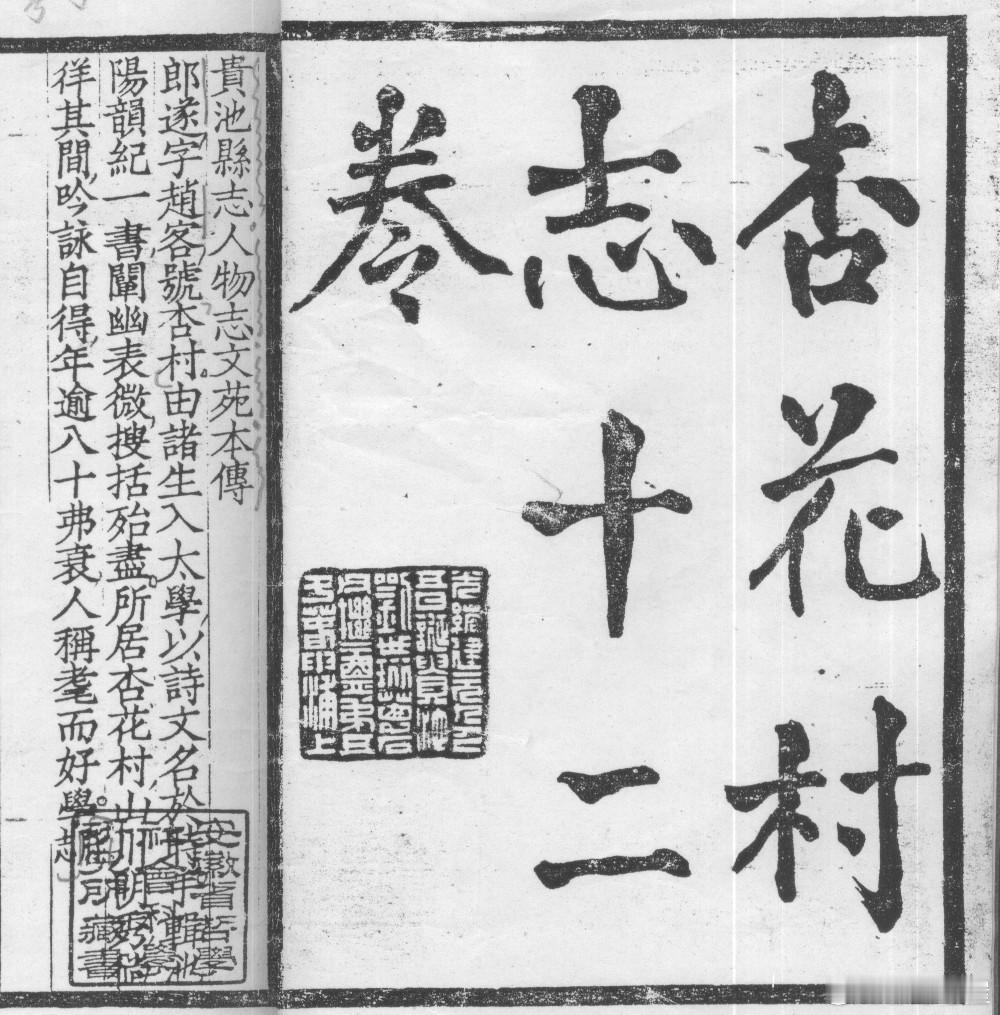 杏花村
志十二
卷
貴池縣志人物志文苑本傳
郎遂字趙客號杏村由諸生入太學以詩文名於時手輯池
陽韻紀一書闡幽表微搜括殆盡所居杏花村山川明秀徜
徉其間吟詠自得年逾八十弗衰人稱耄而好學
安徽省哲學
社會科學
研究所藏書